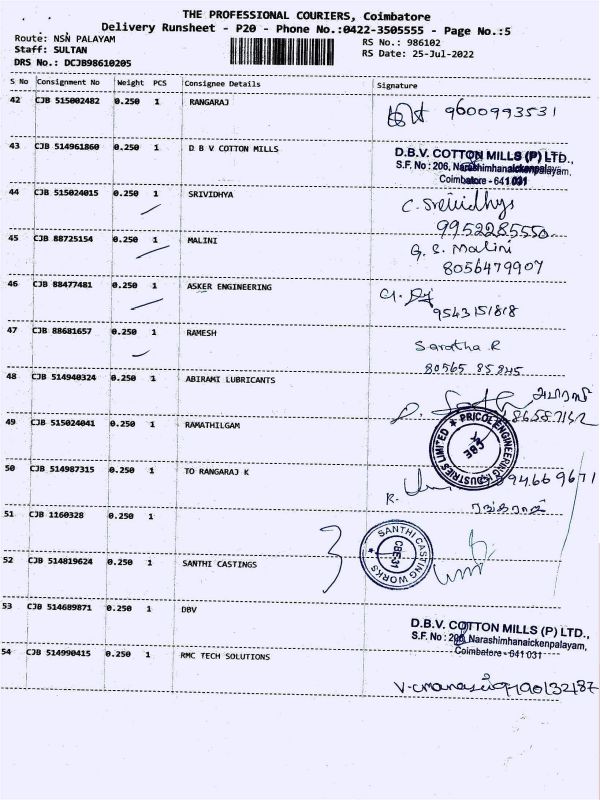 THE PROFESSIONAL COURIERS, Coimbatore
Delivery Runsheet - P20 - Phone No.:0422-3505555 - Page No.:5
Route: NSN PALAYAM
RS No.: 986102
Staff: SULTAN
RS Date: 25-Jul-2022
DRS No.: DCJB98610205
S No Consignment No Weight PCS Consignee Details Signature
42 CJB 515002482 0.250 1 RANGARAJ 9600993531
43 CJB 514961860 0.250 1 D B V COTTON MILLS
D.B.V. COTTON MILLS (P) LTD.,
S.F. No : 206, Narashimhanaickenpalayam,
Coimbatore - 641 031
44 CJB 515024015 0.250 1 SRIVIDHYA C. Srevidhys
9952285550
45 CJB 88725154 0.250 1 MALINI G. S. Malini
8056479907
46 CJB 88477481 0.250 1 ASKER ENGINEERING
9543151818
47 CJB 88681657 0.250 1 RAMESH Saratha R
80565 85845
48 CJB 514940324 0.250 1 ABIRAMI LUBRICANTS
49 CJB 515024041 0.250 1 RAMATHILGAM
PRICOL ENGINEERING INDUSTRIES LIMITED
50 CJB 514987315 0.250 1 TO RANGARAJ K
R.
51 CJB 1160328 0.250 1
52 CJB 514819624 0.250 1 SANTHI CASTINGS
SANTHI CASTING WORKS
CBE-31
53 CJB 514689871 0.250 1 DBV
D.B.V. COTTON MILLS (P) LTD.,
S.F. No : 206, Narashimhanaickenpalayam,
Coimbatore - 641 031
54 CJB 514990415 0.250 1 RMC TECH SOLUTIONS